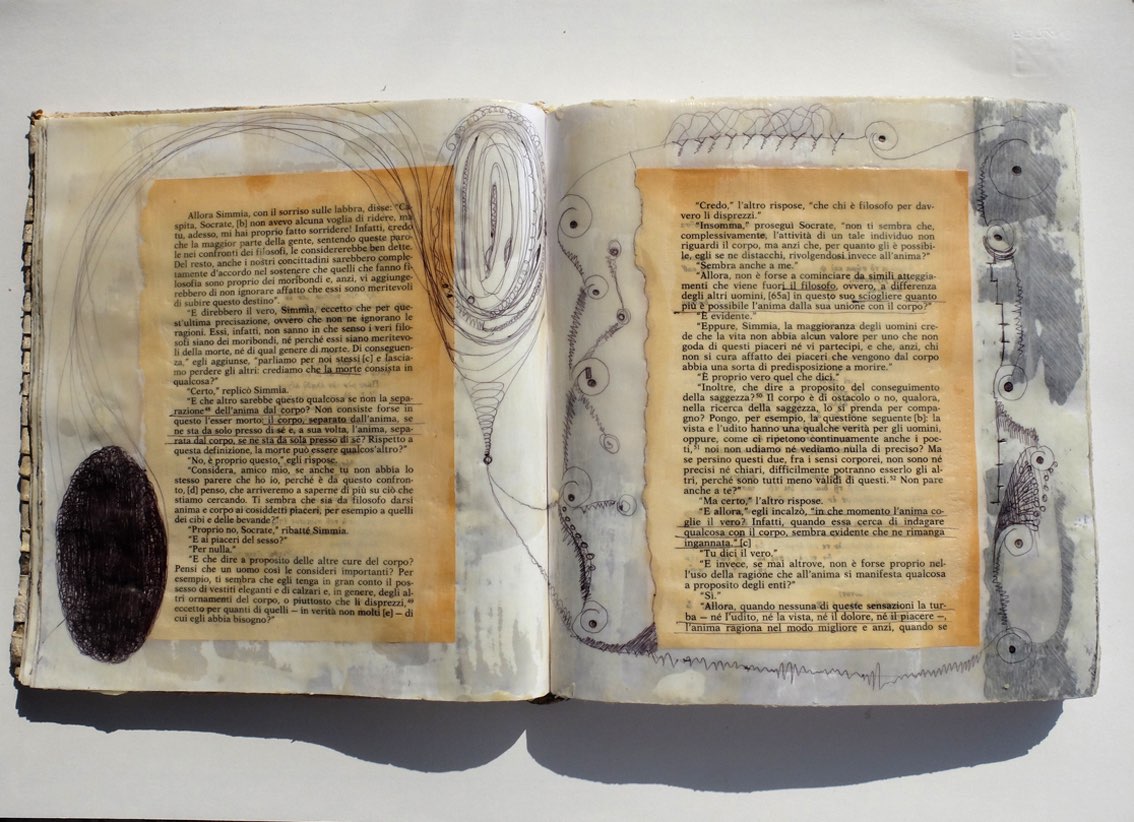 Allora Simmia, con il sorriso sulle labbra, disse: "Ca-
spita, Socrate, [b] non avevo alcuna voglia di ridere, ma
tu, adesso, mi hai proprio fatto sorridere! Infatti, credo
che la maggior parte della gente, sentendo queste paro-
le nei confronti dei filosofi, le considererebbe ben dette.
Del resto, anche i nostri concittadini sarebbero comple-
tamente d'accordo nel sostenere che quelli che fanno fi-
losofia sono proprio dei moribondi e, anzi, vi aggiunge-
rebbero di non ignorare affatto che essi sono meritevoli
di subire questo destino".
"E direbbero il vero, Simmia, eccetto che per que-
st'ultima precisazione, ovvero che non ne ignorano le
ragioni. Essi, infatti, non sanno in che senso i veri filo-
sofi siano dei moribondi, né perché essi siano meritevo-
li della morte, né di qual genere di morte. Di conseguen-
za," egli aggiunse, "parliamo per noi stessi [c] e lascia-
mo perdere gli altri: crediamo che la morte consista in
qualcosa?"
"Certo," replicò Simmia.
"E che altro sarebbe questo qualcosa se non la sepa-
razione⁴⁸ dell'anima dal corpo? Non consiste forse in
questo l'esser morto: il corpo, separato dall'anima, se
ne sta da solo presso di sé e, a sua volta, l'anima, sepa-
rata dal corpo, se ne sta da sola presso di sé? Rispetto a
questa definizione, la morte può essere qualcos'altro?"
"No, è proprio questo," egli rispose.
"Considera, amico mio, se anche tu non abbia lo
stesso parere che ho io, perché è da questo confron-
to, [d] penso, che arriveremo a saperne di più su ciò che
stiamo cercando. Ti sembra che sia da filosofo darsi
anima e corpo ai cosiddetti piaceri, per esempio a quelli
dei cibi e delle bevande?"
"Proprio no, Socrate," ribatté Simmia.
"E ai piaceri del sesso?"
"Per nulla."
"E che dire a proposito delle altre cure del corpo?
Pensi che un uomo così le consideri importanti? Per
esempio, ti sembra che egli tenga in gran conto il pos-
sesso di vestiti eleganti e di calzari e, in genere, degli al-
tri ornamenti del corpo, o piuttosto che li disprezzi,⁴⁹
eccetto per quanti di quelli – in verità non molti [e] – di
cui egli abbia bisogno?"
"Credo," l'altro rispose, "che chi è filosofo per dav-
vero li disprezzi."
"Insomma," proseguì Socrate, "non ti sembra che,
complessivamente, l'attività di un tale individuo non
riguardi il corpo, ma anzi che, per quanto gli è possibi-
le, egli se ne distacchi, rivolgendosi invece all'anima?"
"Sembra anche a me."
"Allora, non è forse a cominciare da simili atteggia-
menti che viene fuori il filosofo, ovvero, a differenza
degli altri uomini, [65a] in questo suo sciogliere quanto
più è possibile l'anima dalla sua unione con il corpo?"
"È evidente."
"Eppure, Simmia, la maggioranza degli uomini cre-
de che la vita non abbia alcun valore per uno che non
goda di questi piaceri né vi partecipi, e che, anzi, chi
non si cura affatto dei piaceri che vengono dal corpo
abbia una sorta di predisposizione a morire."
"È proprio vero quel che dici."
"Inoltre, che dire a proposito del conseguimento
della saggezza?⁵⁰ Il corpo è di ostacolo o no, qualora,
nella ricerca della saggezza, lo si prenda per compa-
gno? Pongo, per esempio, la questione seguente [b]: la
vista e l'udito hanno una qualche verità per gli uomini,
oppure, come ci ripetono continuamente anche i poe-
ti,⁵¹ noi non udiamo né vediamo nulla di preciso? Ma
se persino questi due, fra i sensi corporei, non sono né
precisi né chiari, difficilmente potranno esserlo gli al-
tri, perché sono tutti meno validi di questi.⁵² Non pare
anche a te?"
"Ma certo," l'altro rispose.
"E allora," egli incalzò, "in che momento l'anima co-
glie il vero? Infatti, quando essa cerca di indagare
qualcosa con il corpo, sembra evidente che ne rimanga
ingannata." [c]
"Tu dici il vero."
"E invece, se mai altrove, non è forse proprio nel-
l'uso della ragione che all'anima si manifesta qualcosa
a proposito degli enti?"
"Sì."
"Allora, quando nessuna di queste sensazioni la tur-
ba – né l'udito, né la vista, né il dolore, né il piacere –,
l'anima ragiona nel modo migliore e anzi, quando se